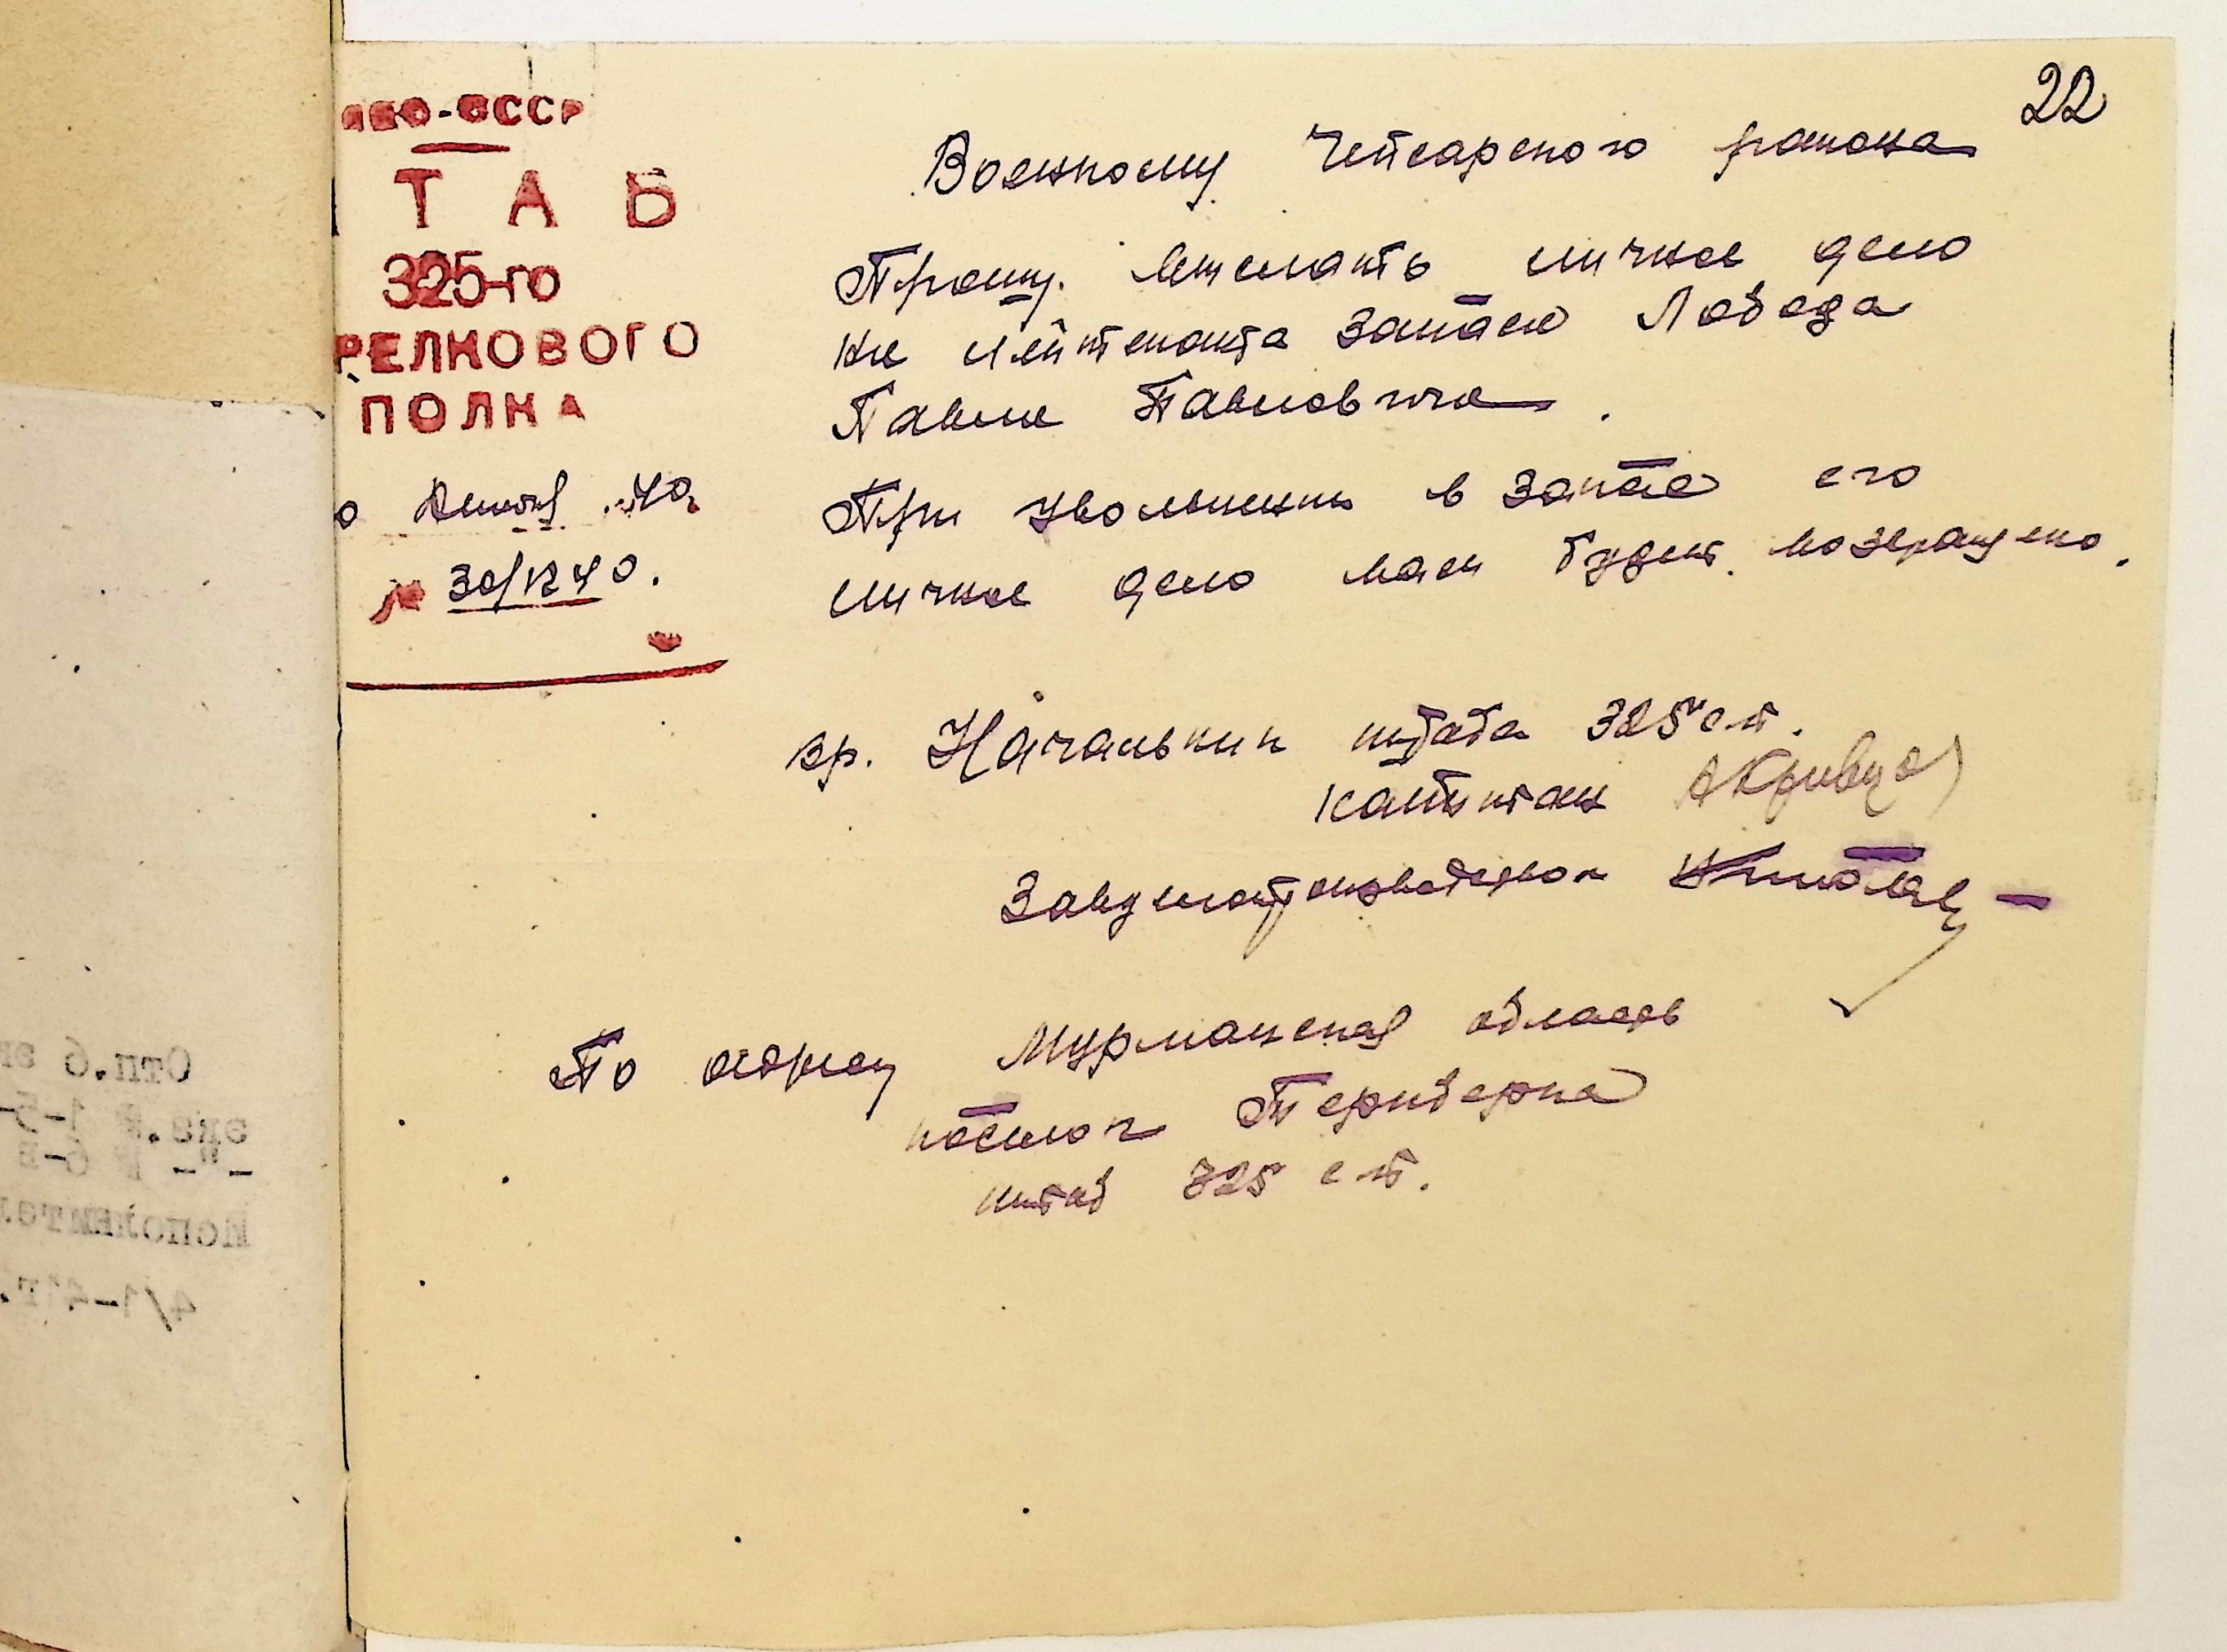 22
НКО-СССР
ТАБ
325-го
РЕЛКОВОГО
ПОЛКА
40
30/XII 40.
Военкому района
Прошу выслать личное дело
на лейтенанта запаса Лобода
Павла Павловича.
При увольнении в запас его
личное дело вам будет возвращено.
вр. Начальник штаба 325 сп.
капитан
По адресу Мурманская область
поселок Териберка
штаб 325 сп.
Отп.6 эк
экз.№ 1-5-
-"- № 6-в
Исполнител
4/1-41г.